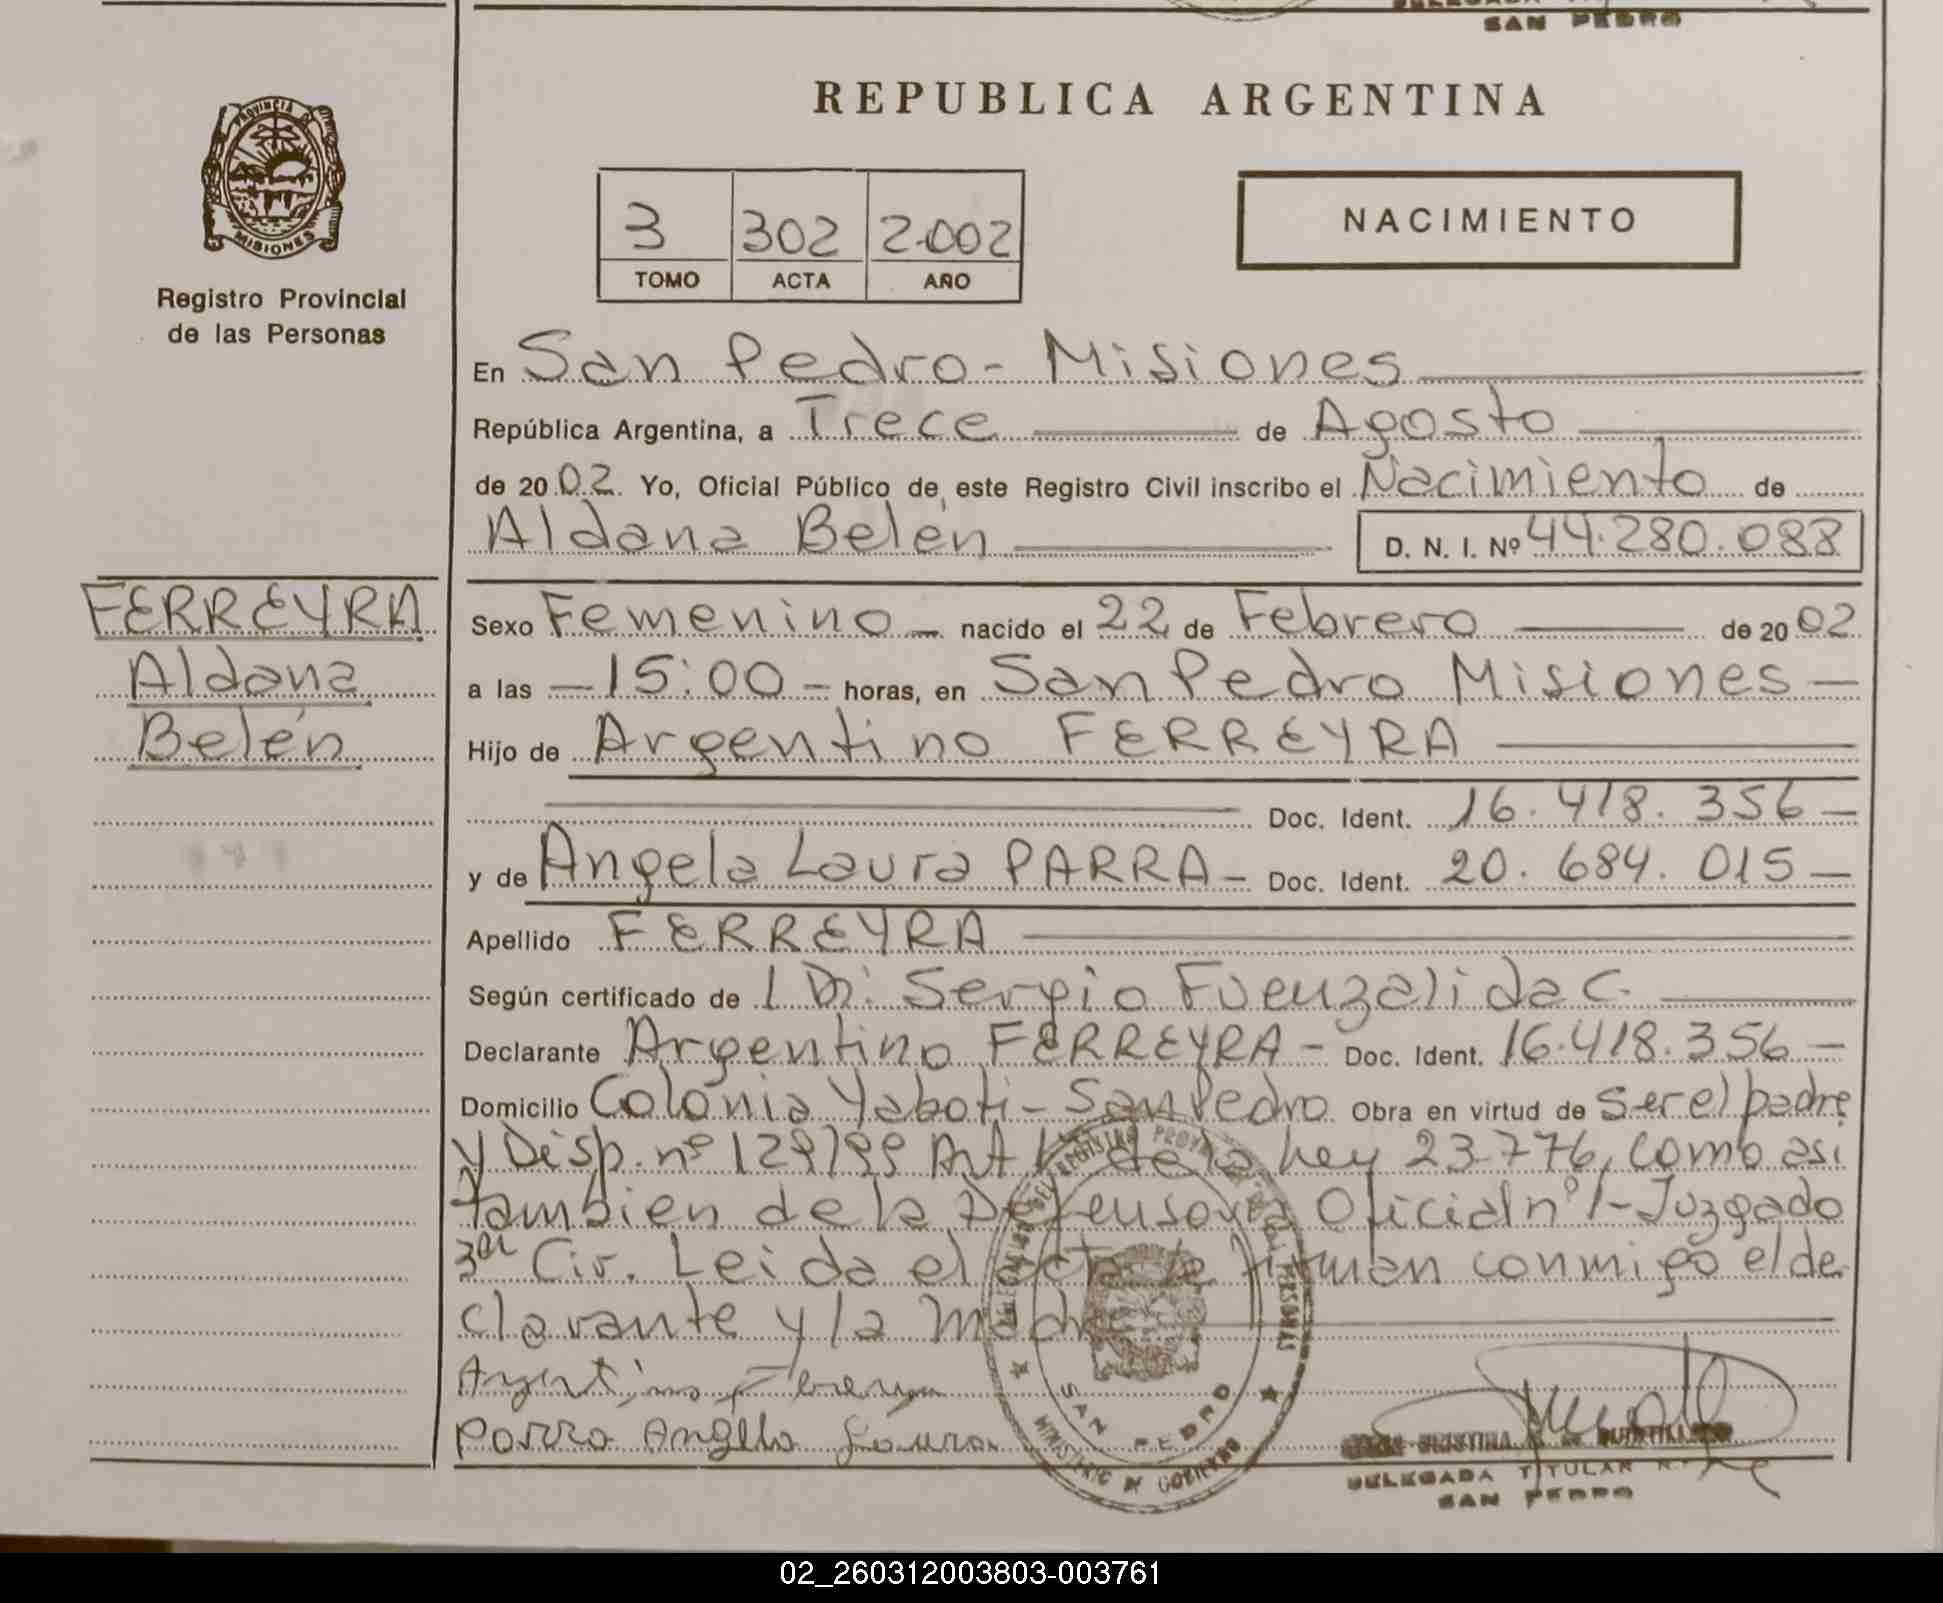 SAN PEDRO
REPUBLICA ARGENTINA
PROVINCIA DE
MISIONES
Registro Provincial
de las Personas
3 302 2.002
TOMO ACTA AÑO
NACIMIENTO
En San Pedro - Misiones
República Argentina, a Trece de Agosto
de 2002. Yo, Oficial Público de este Registro Civil inscribo el Nacimiento de
Aldana Belén D. N. I. Nº 44.280.088
FERREYRA
Aldana
Belén
Sexo Femenino nacido el 22 de Febrero de 2002
a las - 15:00 - horas, en San Pedro Misiones -
Hijo de Argentino FERREYRA
Doc. Ident. 16.418.356 -
y de Angela Laura PARRA - Doc. Ident. 20.684.015 -
Apellido FERREYRA
Según certificado de Sergio Fuenzalida C.
Declarante Argentino FERREYRA - Doc. Ident. 16.418.356 -
Domicilio Colonia Yaboti - San Pedro Obra en virtud de ser el padre
y Disp. nº Art de la Ley 23.776, como asi
tambien de la Defensoria Oficial nº 1 - Juzgado
3ª Cir. Leida el acta la firman conmigo el de
clarante y la madre
Argentino Ferreyra
Parra Angela Laura
SAN PEDRO
MINISTERIO DE GOBIERNO
DELEGADA TITULAR
SAN PEDRO
02_260312003803-003761